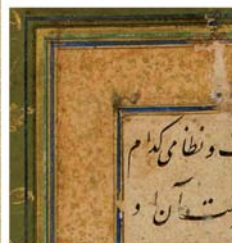 و نظامی کدام
آن و